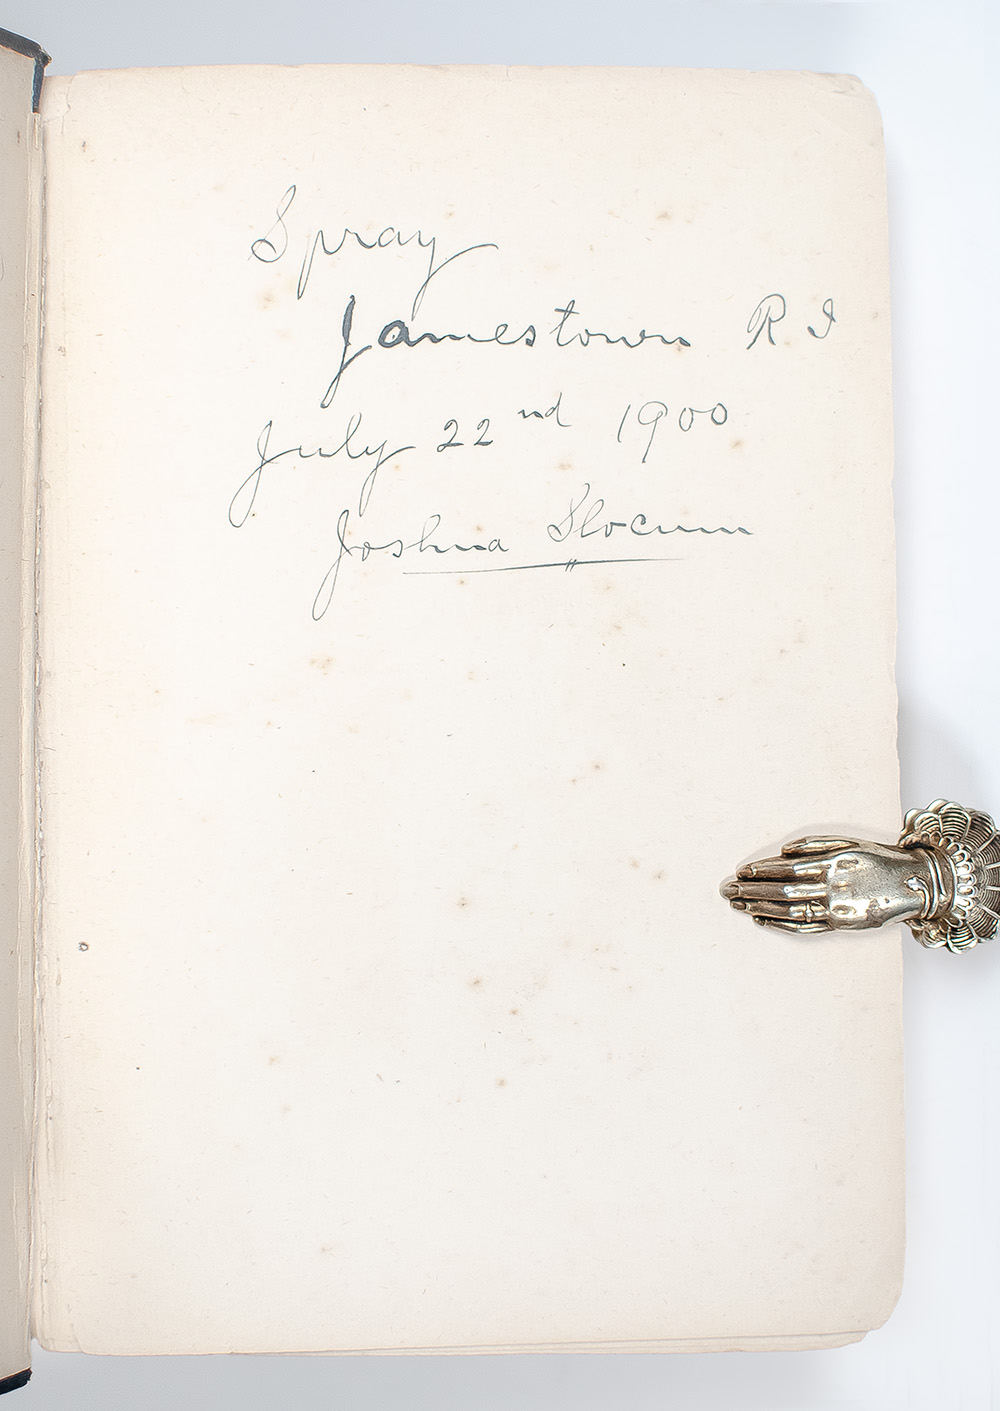 Spray
Jamestown R I
July 22nd 1900
Joshua Slocum